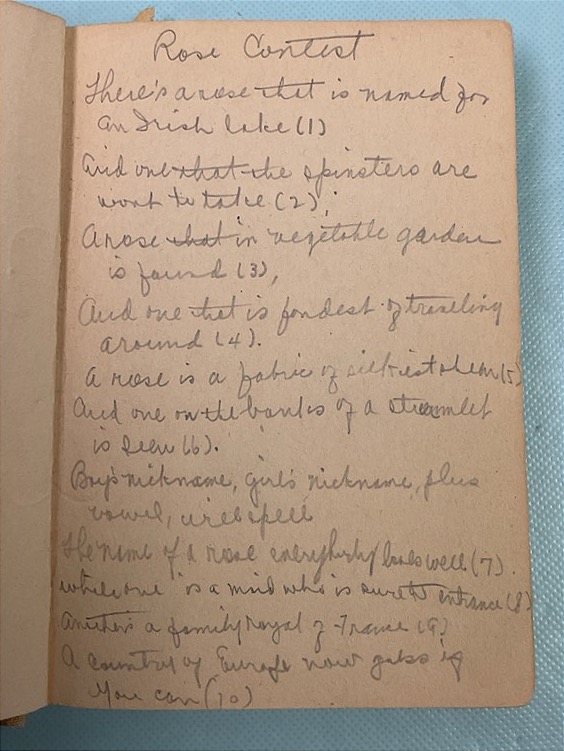 Rose Contest
There's a rose that is named for
an Irish lake (1)
And one that the spinsters are
wont to take (2);
A rose that in vegetable garden
is found (3),
And one that is fondest of traveling
around (4).
A rose is a fabric of silkiest sheen (5)
And one on the banks of a streamlet
is seen (6).
Boy's nickname, girl's nickname, plus
vowel, will spell
The name of a rose everybody loves well (7).
while one is a maid who is sure to entrance (8)
Another's a family royal of France (9)
A country of Europe now guess if
you can (10)